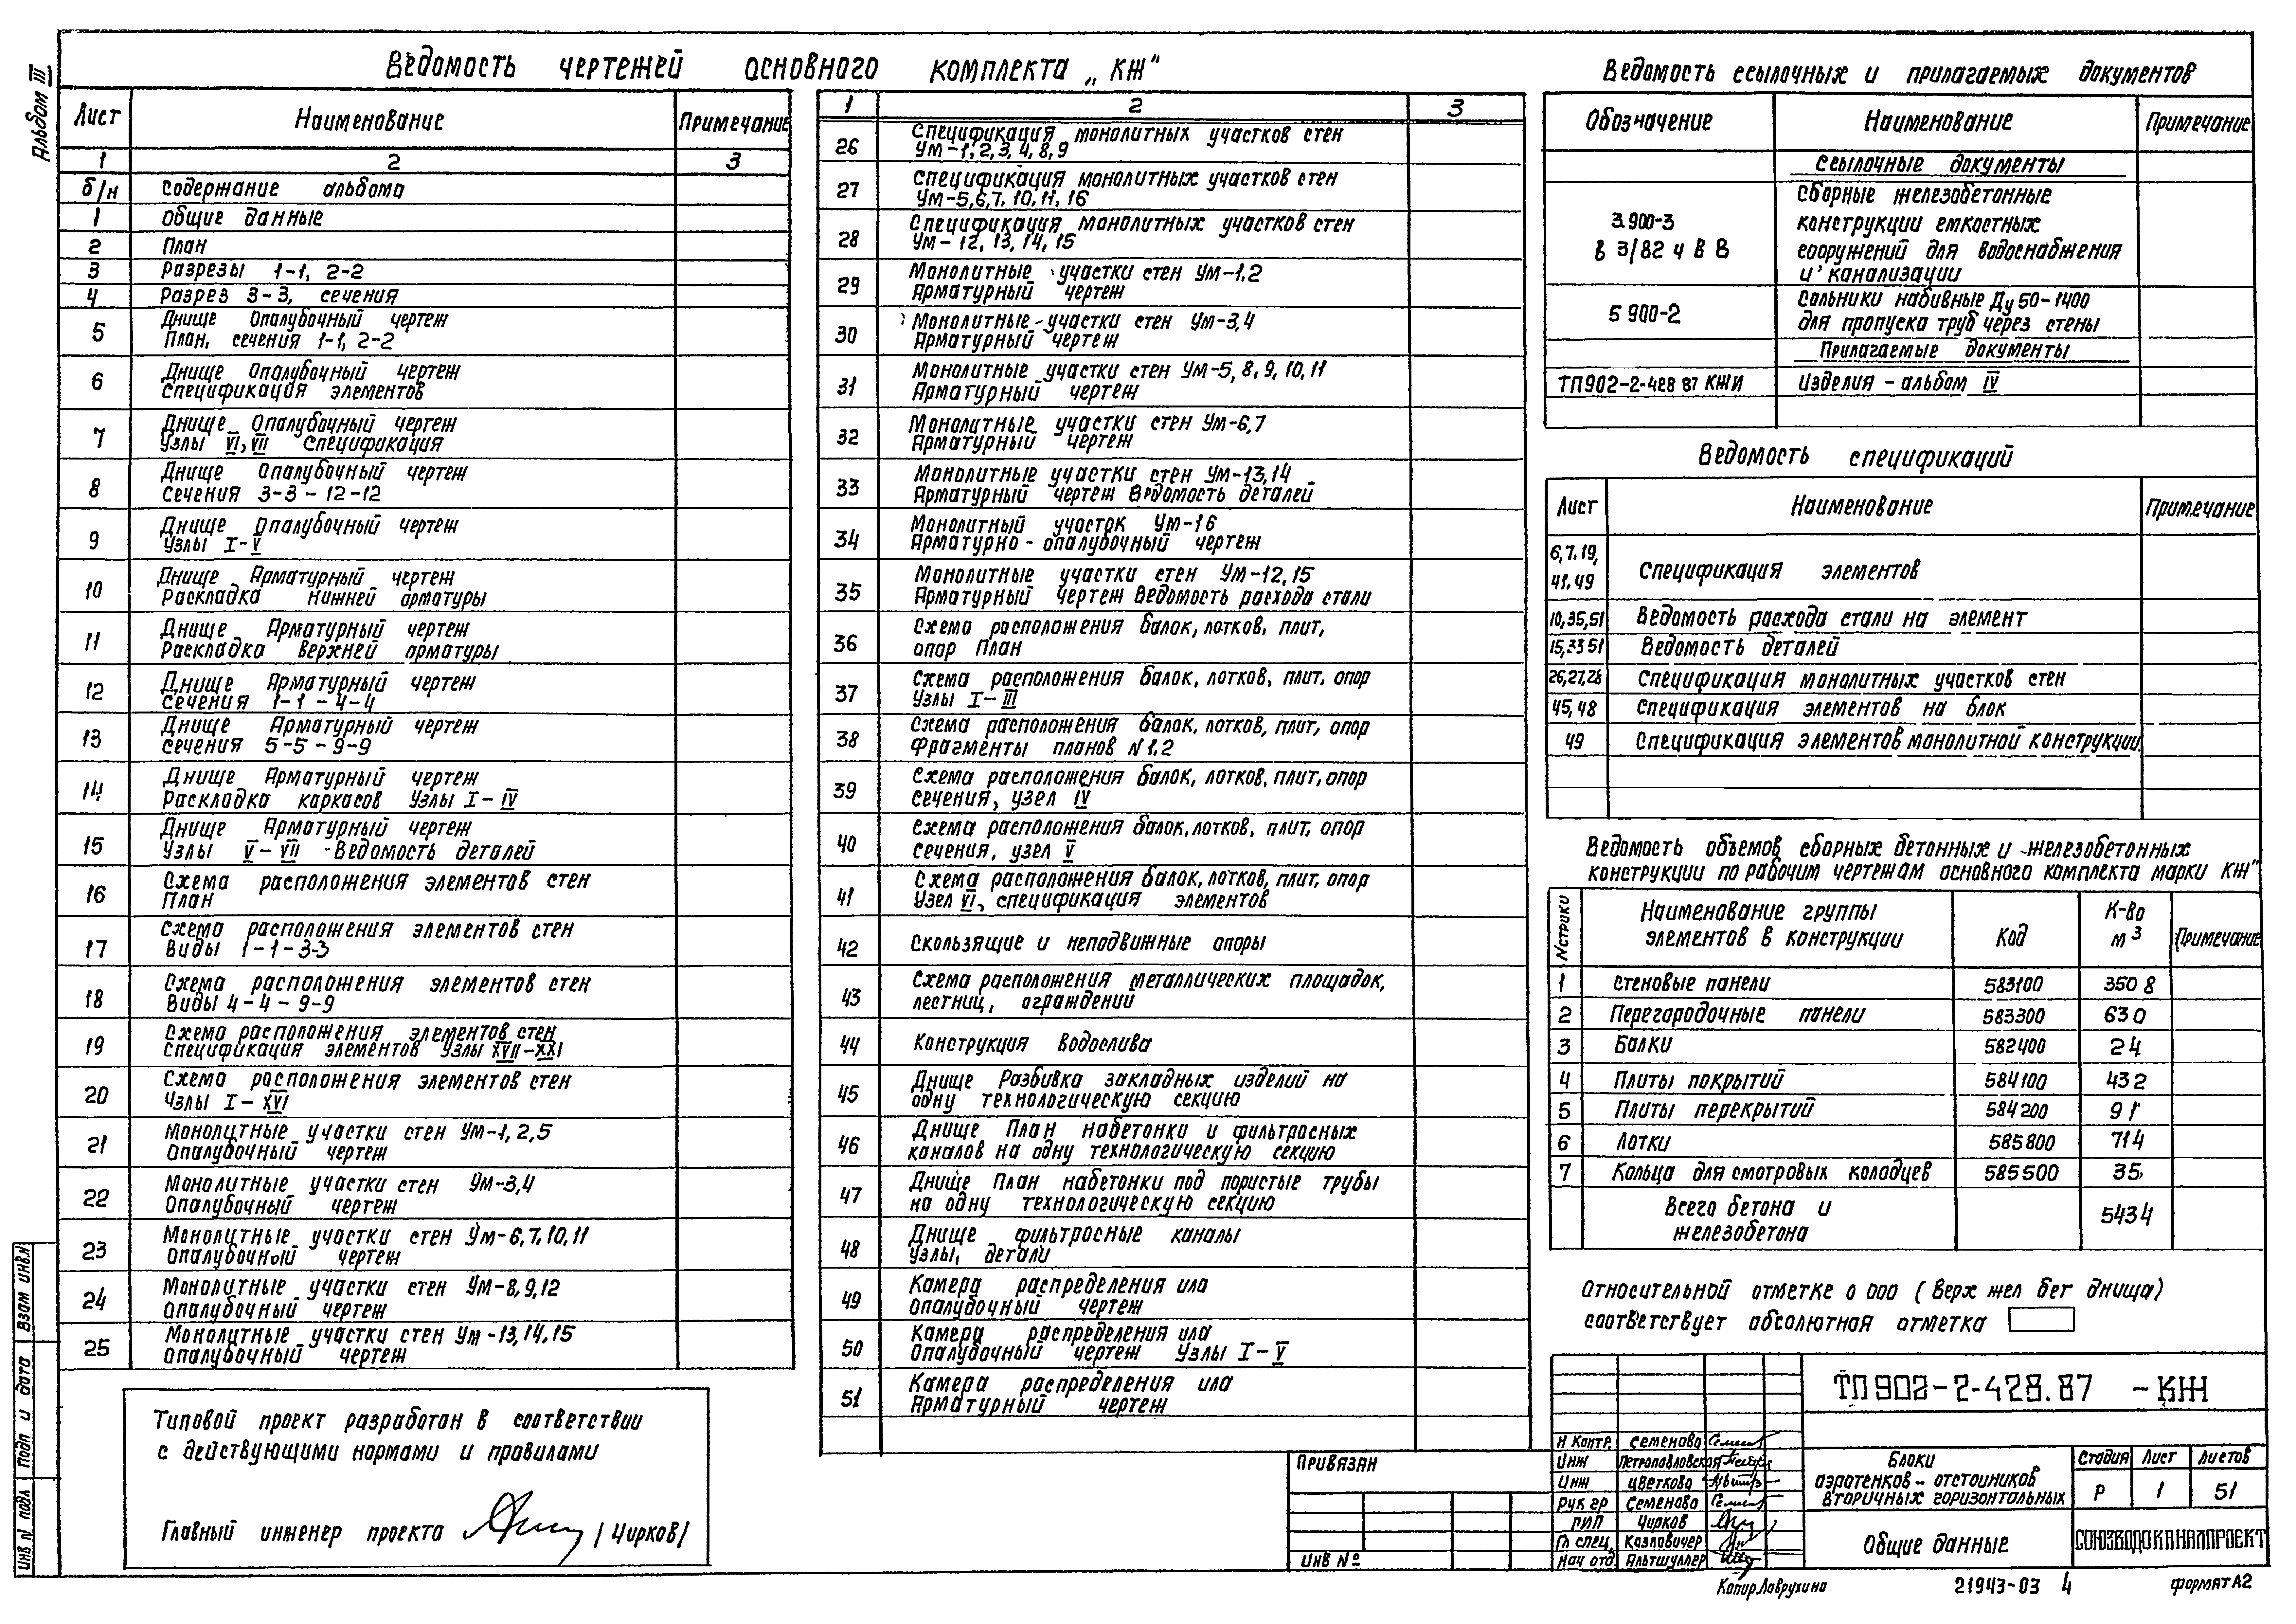 Альбом III
Ведомость чертежей основного комплекта „КЖ"
Лист Наименование Примечание
1 2 3
б/н Содержание альбома
1 Общие данные
2 План
3 Разрезы 1-1, 2-2
4 Разрез 3-3, сечения
5 Днище Опалубочный чертеж
План, сечения 1-1, 2-2
6 Днище Опалубочный чертеж
Спецификация элементов
7 Днище Опалубочный чертеж
Узлы VI, VII Спецификация
8 Днище Опалубочный чертеж
Сечения 3-3 - 12-12
9 Днище Опалубочный чертеж
Узлы I-V
10 Днище Арматурный чертеж
Раскладка нижней арматуры
11 Днище Арматурный чертеж
Раскладка верхней арматуры
12 Днище Арматурный чертеж
Сечения 1-1 - 4-4
13 Днище Арматурный чертеж
Сечения 5-5 - 9-9
14 Днище Арматурный чертеж
Раскладка каркасов Узлы I-IV
15 Днище Арматурный чертеж
Узлы V-VII Ведомость деталей
16 Схема расположения элементов стен
План
17 Схема расположения элементов стен
Виды 1-1-3-3
18 Схема расположения элементов стен
Виды 4-4-9-9
19 Схема расположения элементов стен
Спецификация элементов Узлы XVII-XXI
20 Схема расположения элементов стен
Узлы I-XVI
21 Монолитные участки стен Ум-1,2,5
Опалубочный чертеж
22 Монолитные участки стен Ум-3,4
Опалубочный чертеж
23 Монолитные участки стен Ум-6,7,10,11
Опалубочный чертеж
24 Монолитные участки стен Ум-8,9,12
Опалубочный чертеж
25 Монолитные участки стен Ум-13,14,15
Опалубочный чертеж
1 2 3
26 Спецификация монолитных участков стен
Ум-1,2,3,4,8,9
27 Спецификация монолитных участков стен
Ум-5,6,7,10,11,16
28 Спецификация монолитных участков стен
Ум-12,13,14,15
29 Монолитные участки стен Ум-1,2
Арматурный чертеж
30 Монолитные участки стен Ум-3,4
Арматурный чертеж
31 Монолитные участки стен Ум-5,8,9,10,11
Арматурный чертеж
32 Монолитные участки стен Ум-6,7
Арматурный чертеж
33 Монолитные участки стен Ум-13,14
Арматурный чертеж Ведомость деталей
34 Монолитный участок Ум-16
Арматурно-опалубочный чертеж
35 Монолитные участки стен Ум-12,15
Арматурный чертеж Ведомость расхода стали
36 Схема расположения балок, лотков, плит,
опор План
37 Схема расположения балок, лотков, плит, опор
Узлы I-III
38 Схема расположения балок, лотков, плит, опор
Фрагменты планов N1,2
39 Схема расположения балок, лотков, плит, опор
Сечения, узел IV
40 Схема расположения балок, лотков, плит, опор
Сечения, узел V
41 Схема расположения балок, лотков, плит, опор
Узел VI, спецификация элементов
42 Скользящие и неподвижные опоры
43 Схема расположения металлических площадок,
лестниц, ограждений
44 Конструкция водослива
45 Днище Разбивка закладных изделий на
одну технологическую секцию
46 Днище План набетонки и фильтросных
каналов на одну технологическую секцию
47 Днище План набетонки под пористые трубы
на одну технологическую секцию
48 Днище фильтросные каналы
Узлы, детали
49 Камера распределения ила
Опалубочный чертеж
50 Камера распределения ила
Опалубочный чертеж Узлы I-V
51 Камера распределения ила
Арматурный чертеж
Ведомость ссылочных и прилагаемых документов
Обозначение Наименование Примечание
Ссылочные документы
3.900-3 в 3/82 ч в 8 Сборные железобетонные
конструкции емкостных
сооружений для водоснабжения
и канализации
5 900-2 Сальники набивные Ду 50-1400
для пропуска труб через стены
Прилагаемые документы
ТП902-2-428 87 КЖИ Изделия - альбом IV
Ведомость спецификаций
Лист Наименование Примечание
6,7,19,
41,49 Спецификация элементов
10,35,51 Ведомость расхода стали на элемент
15,33 51 Ведомость деталей
26,27,28 Спецификация монолитных участков стен
45,48 Спецификация элементов на блок
49 Спецификация элементов монолитной конструкции
Ведомость объемов сборных бетонных и железобетонных
конструкции по рабочим чертежам основного комплекта марки КЖ"
N строки Наименование группы
элементов в конструкции Код К-во
м³ Примечание
1 Стеновые панели 583100 350 8
2 Перегородочные панели 583300 63 0
3 Балки 582400 2 4
4 Плиты покрытий 584100 43 2
5 Плиты перекрытий 584200 9 1
6 Лотки 585800 71 4
7 Кольца для смотровых колодцев 585500 3 5
Всего бетона и
железобетона 543 4
Относительной отметке 0 000 (верх жел бет днища)
соответствует абсолютная отметка
Типовой проект разработан в соответствии
с действующими нормами и правилами
Главный инженер проекта /Чирков/
Привязан
Инв №
ТП902-2-428.87 -КЖ
Н контр. Семенова
Инж Петропавловская
Инж Цветкова
Рук гр Семенова
ГИП Чирков
Гл спец. Казловичер
Нач отд. Альтшуллер
Блоки
аэротенков-отстойников
вторичных горизонтальных
Стадия Лист Листов
Р 1 51
Общие данные
СОЮЗВОДОКАНАЛПРОЕКТ
Копир Лаврухина 21943-03 4 формат А2
Инв N подл Подп и дата Взам инв.N